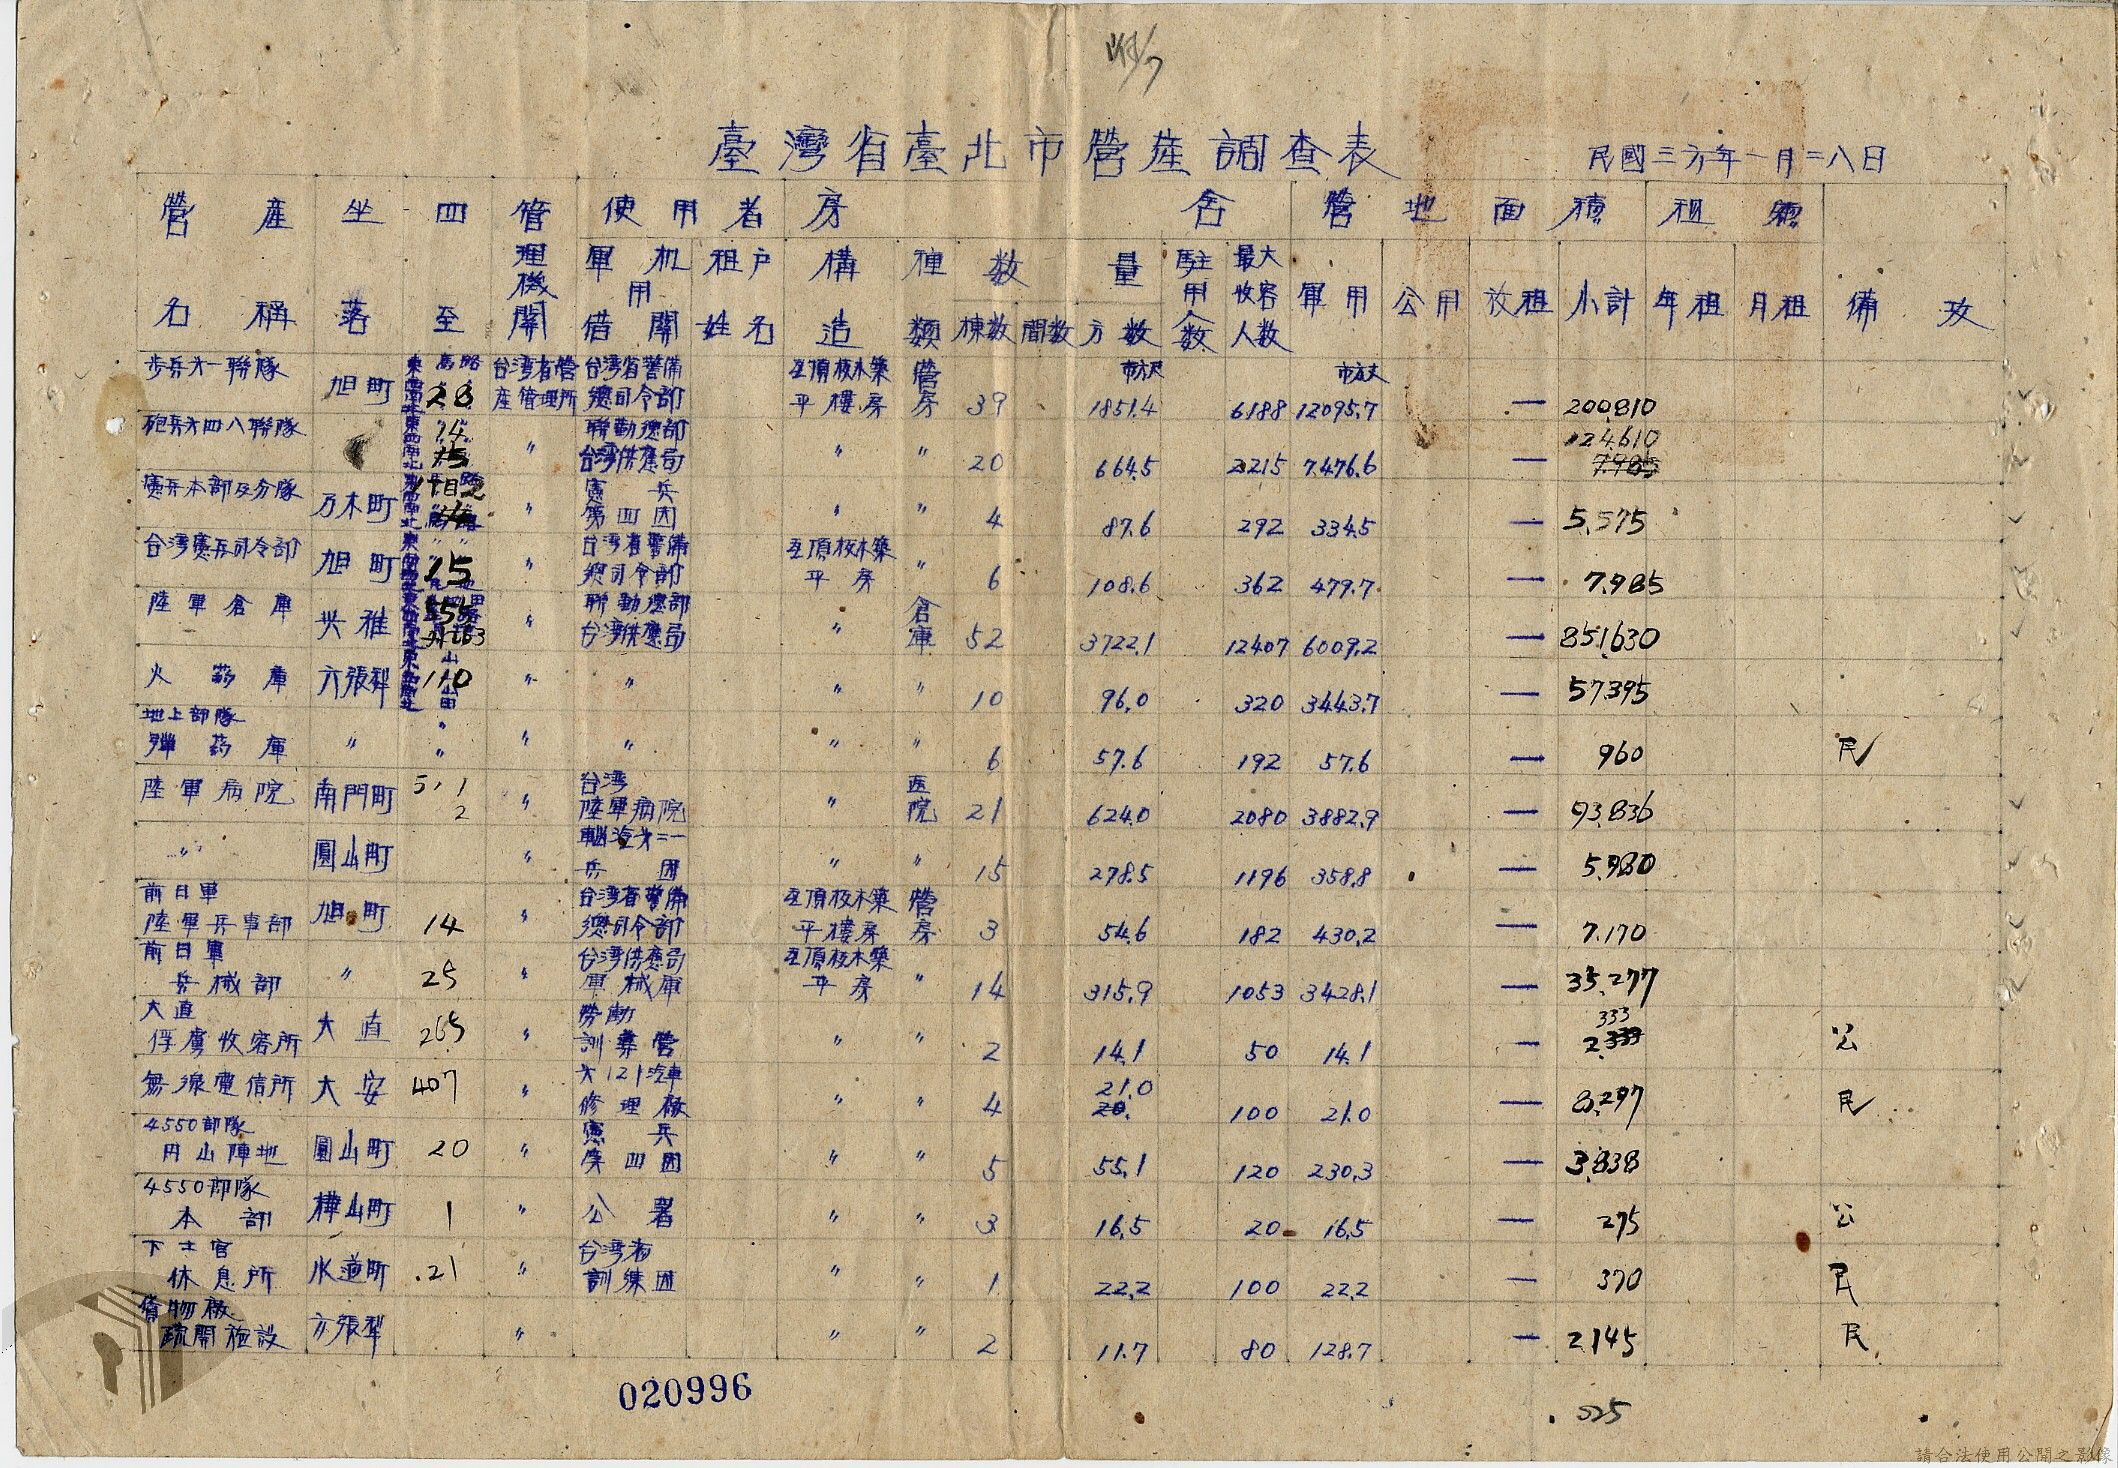 臺灣省臺北市營産調查表
民國三六年一月二八日
營産名稱 坐落 四至 管理機関 使用者 房舍 營地面積 租額 備攷
軍用机関 借用 租户姓名 構造 種類 数量 駐用人数 最大收容人数 軍用 公用 放租 小計 年租 月租
棟数 間数 方数
步兵第一聯隊 旭町 28 台湾省營産管理所 台湾省警備總司令部 瓦頂板木築平樓房 營房 39 市方尺 1851.4 6188 市方丈 12095.7 — 200810
砲兵第四八聯隊 14 〃 聯勤總部台湾供應局 〃 〃 20 664.5 2215 7.476.6 — 124.610
憲兵本部及分隊 万木町 〃 憲兵第四团 〃 〃 4 87.6 292 334.5 — 5.575
台湾憲兵司令部 旭町 15 〃 台湾省警備總司令部 瓦頂板木築平房 〃 6 108.6 362 479.7 — 7.985
陸軍倉庫 兴雅 〃 聯勤總部台湾供應局 〃 倉庫 52 3722.1 12407 6009.2 — 851.630
火葯庫 六張犁 110 〃 〃 〃 〃 10 96.0 320 3443.7 — 57395
地上部隊弹葯庫 〃 〃 〃 〃 〃 〃 6 57.6 192 57.6 — 960 民
陸軍病院 南門町 5,1 2 〃 台湾陸軍病院 〃 医院 21 624.0 2080 3882.9 — 93.836
〃 圓山町 〃 輜汽第二一兵团 〃 〃 15 278.5 1196 358.8 — 5.980
前日軍陸軍兵事部 旭町 14 〃 台湾省警備總司令部 瓦頂板木築平樓房 營房 3 54.6 182 430.2 — 7.170
前日軍兵械部 〃 25 〃 台湾供應局軍械庫 瓦頂板木築平房 〃 14 315.9 1053 3428.1 — 35.277
大直俘虜收容所 大直 265 〃 勞動訓導營 〃 〃 2 14.1 50 14.1 — 2.333 公
無線電信所 大安 407 〃 第121汽車修理廠 〃 〃 4 21.0 100 21.0 — 8.297 民
4550部隊円山陣地 圓山町 20 〃 憲兵第四团 〃 〃 5 55.1 120 230.3 — 3.838
4550部隊本部 樺山町 1 〃 公署 〃 〃 3 16.5 20 16.5 — 275 公
下士官休息所 水道町 21 〃 台湾省訓練团 〃 〃 1 22.2 100 22.2 — 370 民
貨物廠疏開施設 六張犁 〃 〃 〃 2 11.7 80 128.7 — 2.145 民
020996
525
請合法使用公開之影像